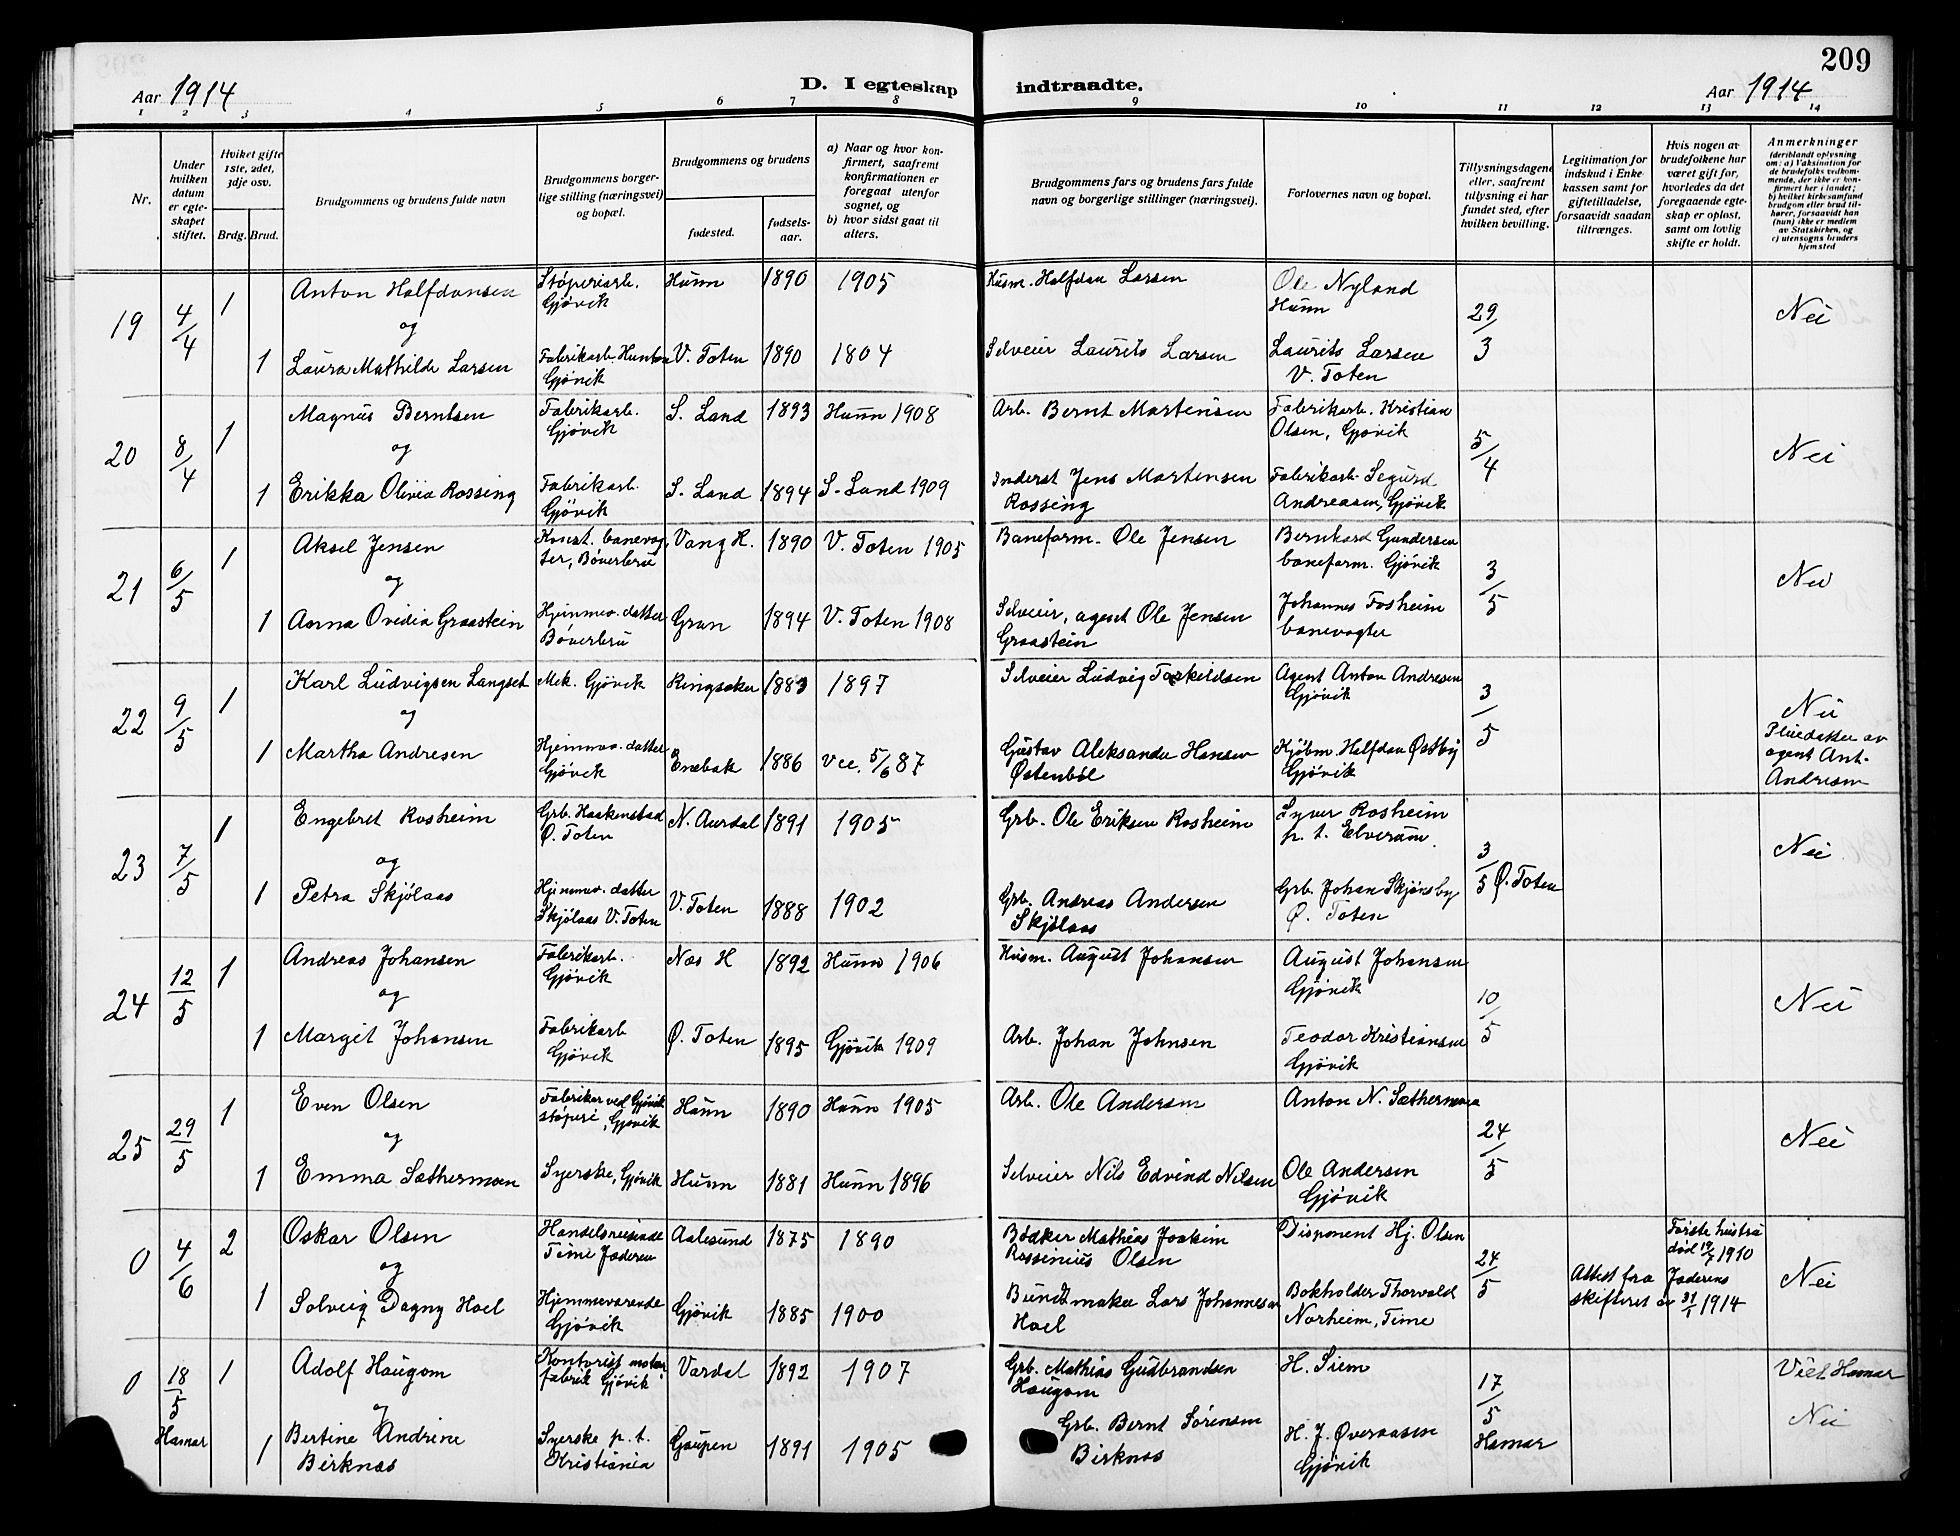 209
Aar 1914
D. I egteskap indtraadte.
Aar 1914
1 2 3 4 5 6 7 8 9 10 11 12 13 14
Nr.
Under hvilken datum er egteskapet stiftet.
Hviket gifte 1ste, 2det, 3dje osv.
Brdg. Brud.
Brudgommens og brudens fulde navn
Brudgommens borgerlige stilling (næringsvei) og bopæl.
Brudgommens og brudens
fødested.
fødselsaar.
a) Naar og hvor konfirmert, saafremt konfirmationen er foregaat utenfor sognet, og
b) hvor sidst gaat til alters.
Brudgommens fars og brudens fars fulde navn og borgerlige stillinger (næringsvei).
Forlovernes navn og bopæl.
Tillysningsdagene eller, saafremt tillysning ei har fundet sted, efter hvilken bevilling.
Legitimation for indskud i Enkekassen samt for giftetilladelse, forsaavidt saadan tiltrænges.
Hvis nogen av brudefolkene har været gift før, hvorledes da det foregaaende egteskap er opløst, samt om lovlig skifte er holdt.
Anmerkninger (deriblandt oplysning om: a) Vaksination for de brudefolks vedkommende, der ikke er konfirmert her i landet; b) hvilket kirkesamfund brudgom eller brud tilhører, forsaavidt han (hun) ikke er medlem av Statskirken, og c) utensogns bruders hjemsted
19 4/4 1 Anton Halfdansen Støperiarb. Gjøvik Hunn 1890 1905 Husm. Halfdan Larsen Ole Nyland Hunn 29/3 Nei
og
1 Laura Mathilde Larsen Fabrikarb. Hunton Gjøvik V. Toten 1890 1804 Selveier Laurits Larsen Laurits Larsen V. Toten
20 8/4 1 Magnus Berntsen Fabrikarb. Gjøvik S. Land 1893 Hunn 1908 Arb. Bernt Martensen Fabrikarb. Kristian Olsen, Gjøvik 5/4 Nei
og
1 Erikka Olivia Rossing Fabrikarb. Gjøvik S. Land 1894 S. Land 1909 Inderst Jens Martensen Rossing Fabrikarb. Segurd Andreasen, Gjøvik
21 6/5 1 Aksel Jensen Konst. banevogter, Bøverbru Vang H. 1890 V. Toten 1905 Baneform. Ole Jensen Bernhard Gundersen baneform. Gjøvik 3/5 Nei
og
1 Anna Ovidia Graastein Hjemmev. datter Bøverbru Gran 1894 V. Toten 1908 Selveier, agent Ole Jensen Graastein Johannes Fosheim banevogter
22 9/5 1 Karl Ludvigsen Langset Mek. Gjøvik Ringsaker 1883 1897 Selveier Ludvig Torkildsen Agent Anton Andresen Gjøvik 3/5 Nei
og
1 Martha Andresen Hjemmev. datter Gjøvik Enebak 1886 Vec. 5/6 87 Gustav Aleksander Hansen Østenbøl Kjøbm. Halfdan Østby Gjøvik Pleiedatter av agent Ant. Andresen
23 7/5 1 Engebret Rosheim Grb. Haakenstad Ø. Toten N. Aurdal 1891 1905 Grb. Ole Eriksen Rosheim Syver Rosheim p. t. Elverum. 3/5 Ø. Toten Nei
og
1 Petra Skjølaas Hjemmev. datter Skjølaas V. Toten V. Toten 1888 1902 Grb. Andreas Andersen Skjølaas Grb. Johan Skjønsby Ø. Toten
24 12/5 1 Andreas Johansen Fabrikarb. Gjøvik Næs H 1892 Hunn 1906 Husm. August Johansen August Johansen Gjøvik 10/5 Nei
og
1 Margit Johansen Fabrikarb Gjøvik Ø. Toten 1895 Gjøvik 1909 Arb. Johan Johnsen Teodor Kristiansen Gjøvik
25 29/5 1 Even Olsen Fabrikar ved Gjøvik støperi, Gjøvik Hunn 1890 Hunn 1905 Arb. Ole Andersen Anton N. Sæthermoen 24/5 Nei
og
1 Emma Sæthermoen Syerske, Gjøvik Hunn 1881 Hunn 1896 Selveier Nils Edvind Nilsen Ole Andersen Gjøvik
0 4/6 2 Oskar Olsen Handelsreisende Time Jæderen Aalesund 1875 1890 Bødker Mathias Joakim Rossinius Olsen Disponent Hj. Olsen 24/5 Attest fra Jæderens skifteret av 31/1 1914 Første hustru død 19/7 1910 Nei
og
1 Solveig Dagny Hoel Hjemmeværende Gjøvik Gjøvik 1885 1900 Bundtmaker Lars Johannesen Hoel Bokholder Thorvald Norheim, Time
0 18/5 Hamar 1 Adolf Haugom Kontorist motorfabrik Gjøvik Vardal 1892 1907 Grb. Mathias Gudbrandsen Haugom H. Siem 17/5 Hamar Viet Hamar
og
1 Bertine Andrine Birknæs Syerske p. t. Kristiania Gaupen 1891 1905 Grb. Bernt Sørensen Birknæs H. J. Øveraasen Gjøvik Nei